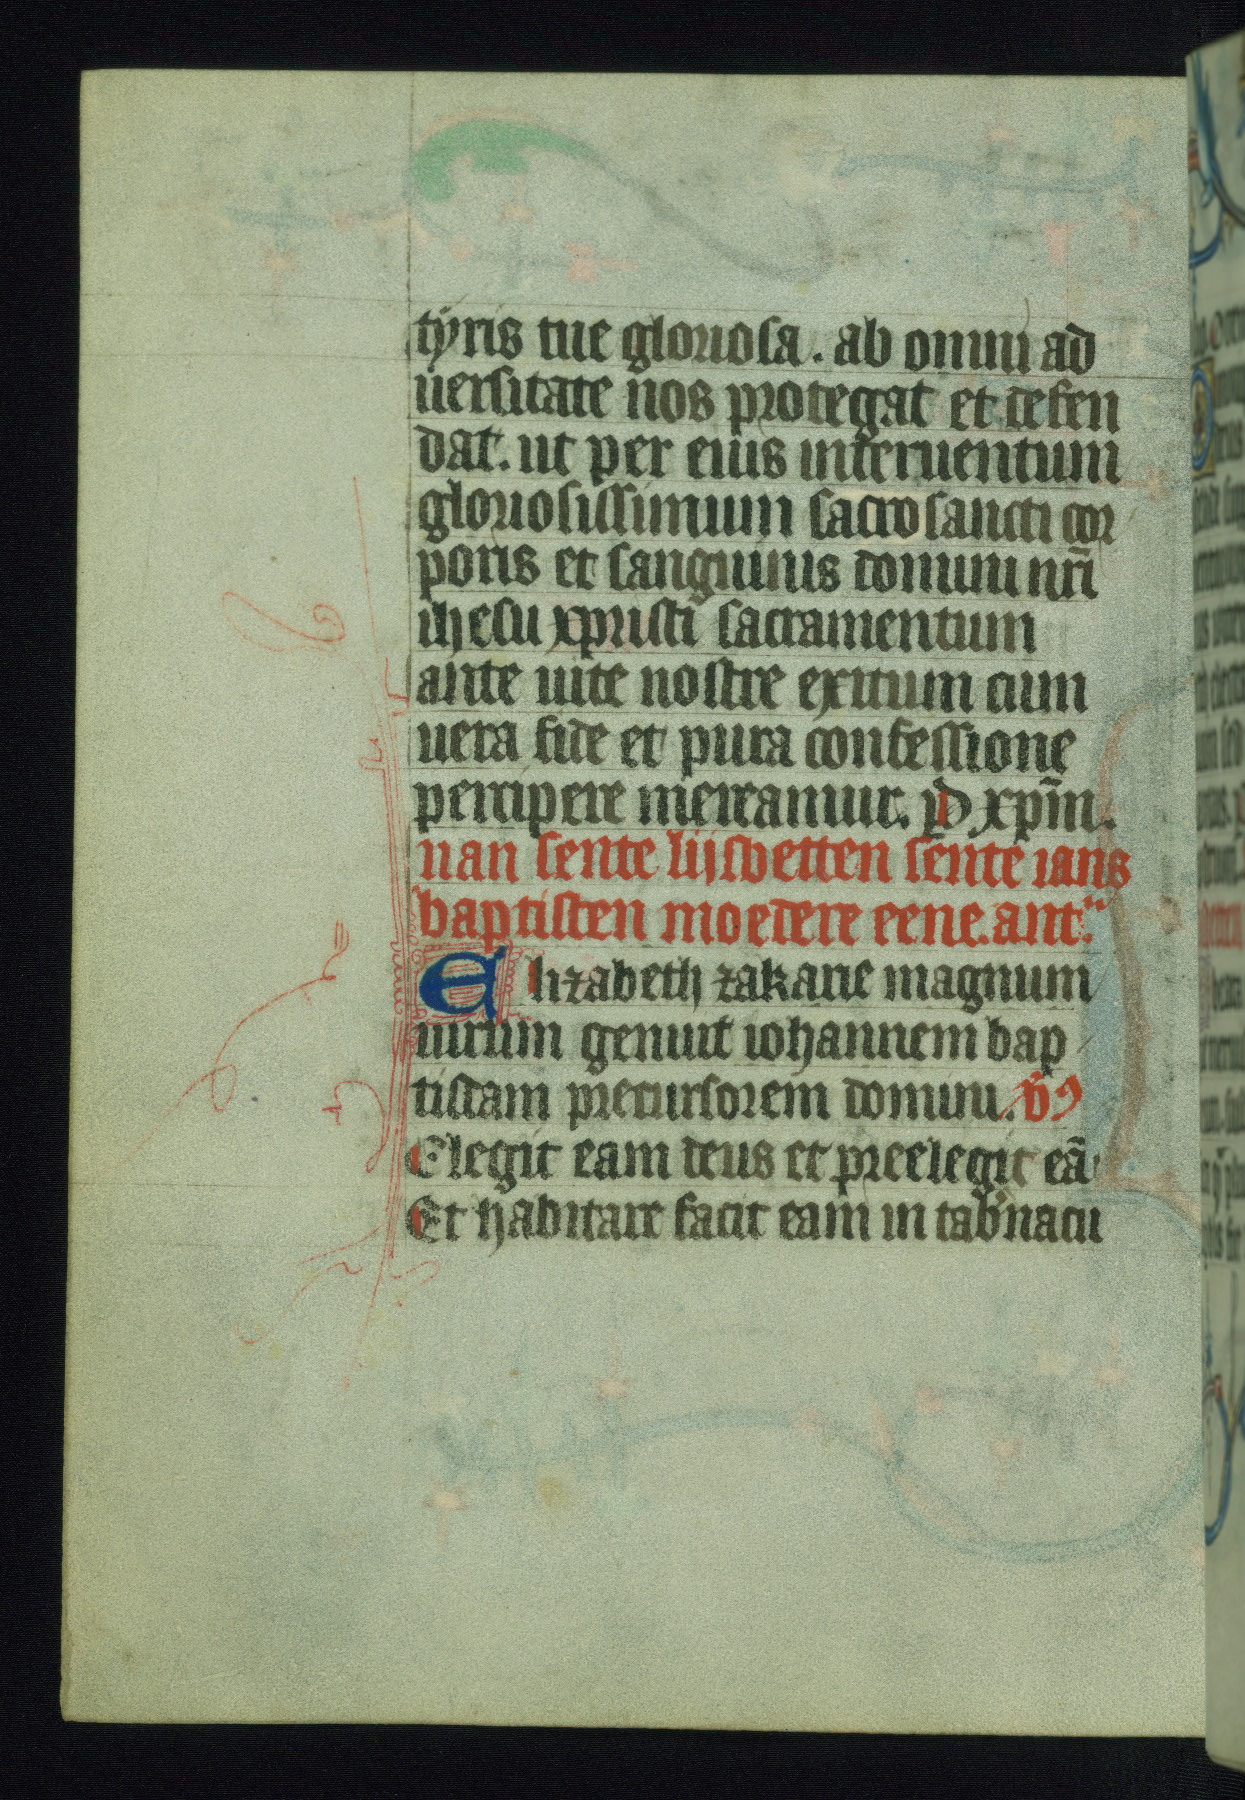 tyris tue gloriosa. ab omni ad
uersitate nos protegat et defen
dat. ut per eius interuentum
gloriosissimum sacrosancti cor
poris et sanguinis domini nr̄i
ihesu xpristi sacramentum
ante uite nostre exitum cum
uera fide et pura confessione
percipere mereamur. p̄d xp̄m.
uan sente lijsbetten sente ians
baptisten moedere eene. ant.
Elizabeth zakarie magnum
uirum genuit iohannem bap
tistam precursorem domini. v̄s
Elegit eam deus et preelegit eā
Et habitare facit eam in tab̄nacu